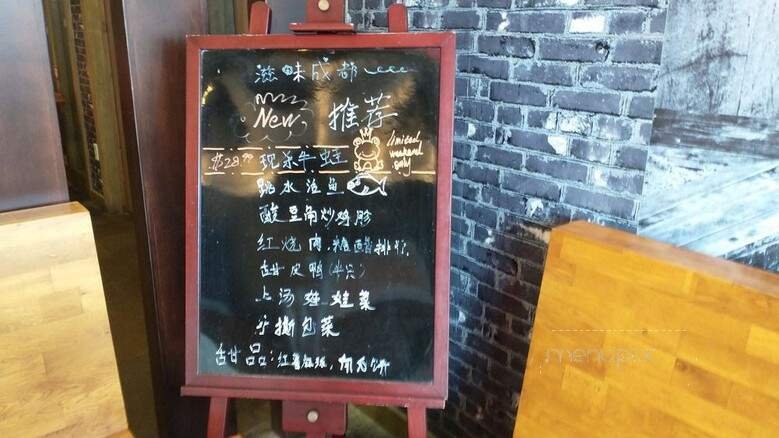 滋味成都
New 推荐
$28.99 现杀牛蛙 limited weekend only
跳水活鱼
酸豆角炒鸡胗
红烧肉.糖醋排骨.
甜皮鸭(半只)
上汤娃娃菜
手撕包菜
甜品:红薯
menupix